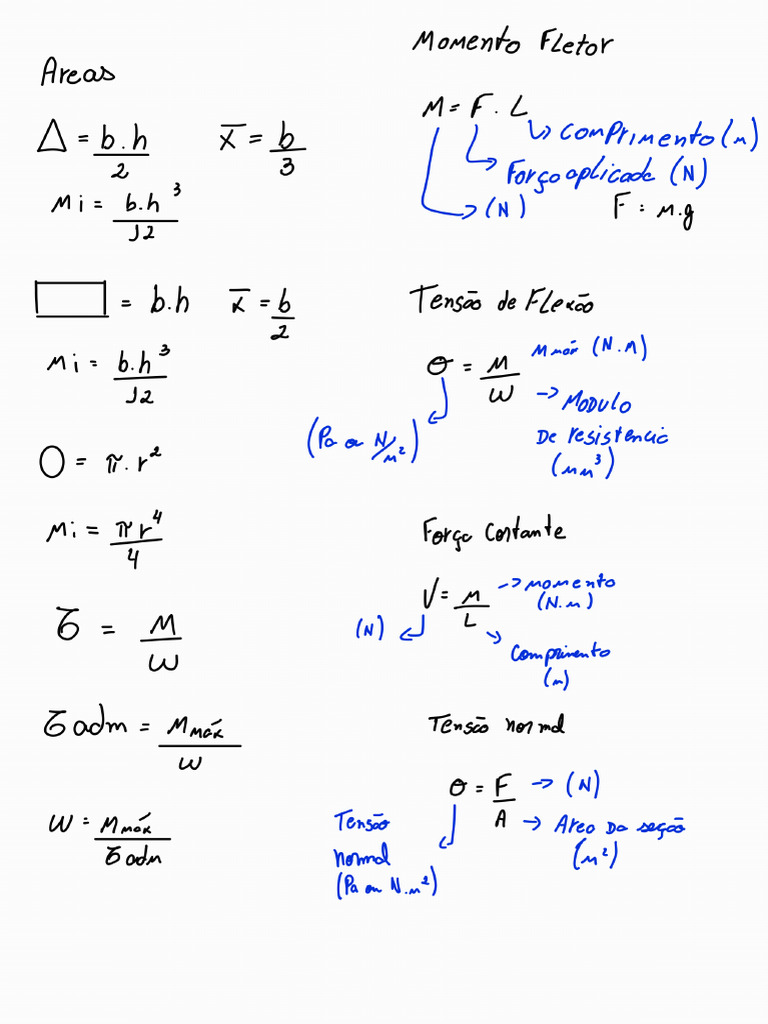 Areas
Δ = b.h/2   x̄ = b/3
Mi = b.h³/12
▭ = b.h   x̄ = b/2
Mi = b.h³/12
O = π.r²
Mi = πr⁴/4
σ = M/W
σ adm = Mmáx/W
W = Mmáx/σ adm
Momento Fletor
M = F . L
comprimento (m)
Força aplicada (N)
(N)   F = m.g
Tensão de Flexão
σ = M/W
Mmáx (N.M)
Modulo
De resistencia
(mm³)
(Pa ou N/m²)
Força Cortante
V = M/L
momento
(N.m)
(N)
Comprimento
(m)
Tensão normal
σ = F/A
(N)
Area Da seção
(m²)
Tensão
normal
(Pa ou N.m²)